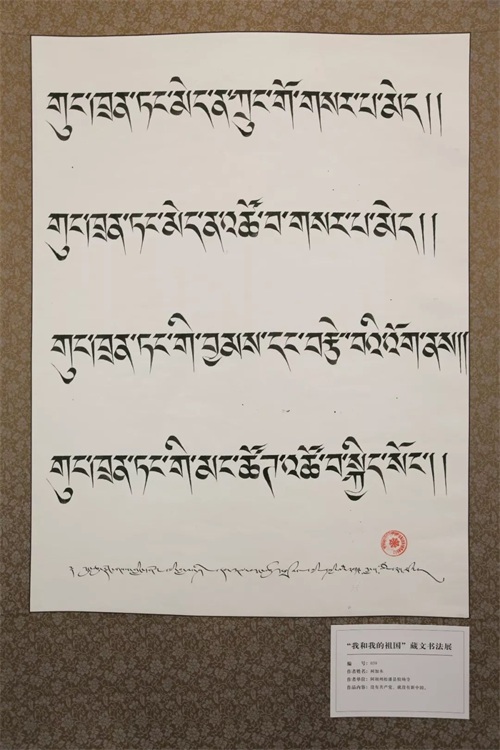 གུང་ཁྲན་ཏང་མེད་ན་ཀྲུང་གོ་གསར་པ་མེད།།
གུང་ཁྲན་ཏང་མེད་ན་འཚོ་བ་གསར་པ་མེད།།
གུང་ཁྲན་ཏང་གི་བྱམས་དང་བརྩེ་བའི་འོག་ནས།།
གུང་ཁྲན་ཏང་གི་མང་ཚོཊ་འཚོ་བ་སྐྱིད་སོང་།།
“我和我的祖国”藏文书法展
编 号：
作者姓名：
作者单位：
作品内容：没有共产党，就没有新中国。